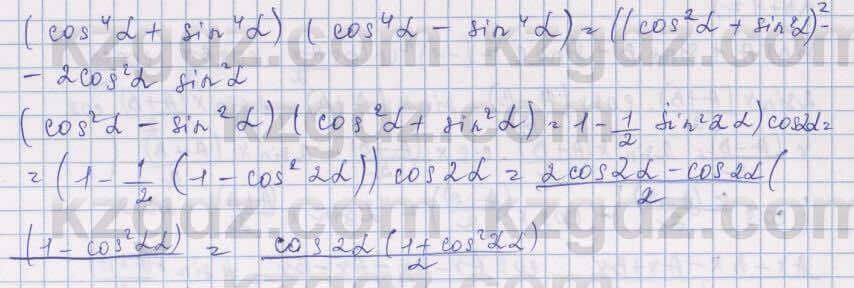 (cos⁴α + sin⁴α) (cos⁴α − sin⁴α) = ((cos²α + sin²α)² −
− 2cos²α sin²α
(cos²α − sin²α) (cos²α + sin²α) = 1 − 1/2 sin²2α) cos2α =
= (1 − 1/2 (1 − cos²2α)) cos2α = 2cos2α − cos2α( / 2
(1 − cos²2α) = cos2α (1 + cos²2α) / 2
kzgdz.com